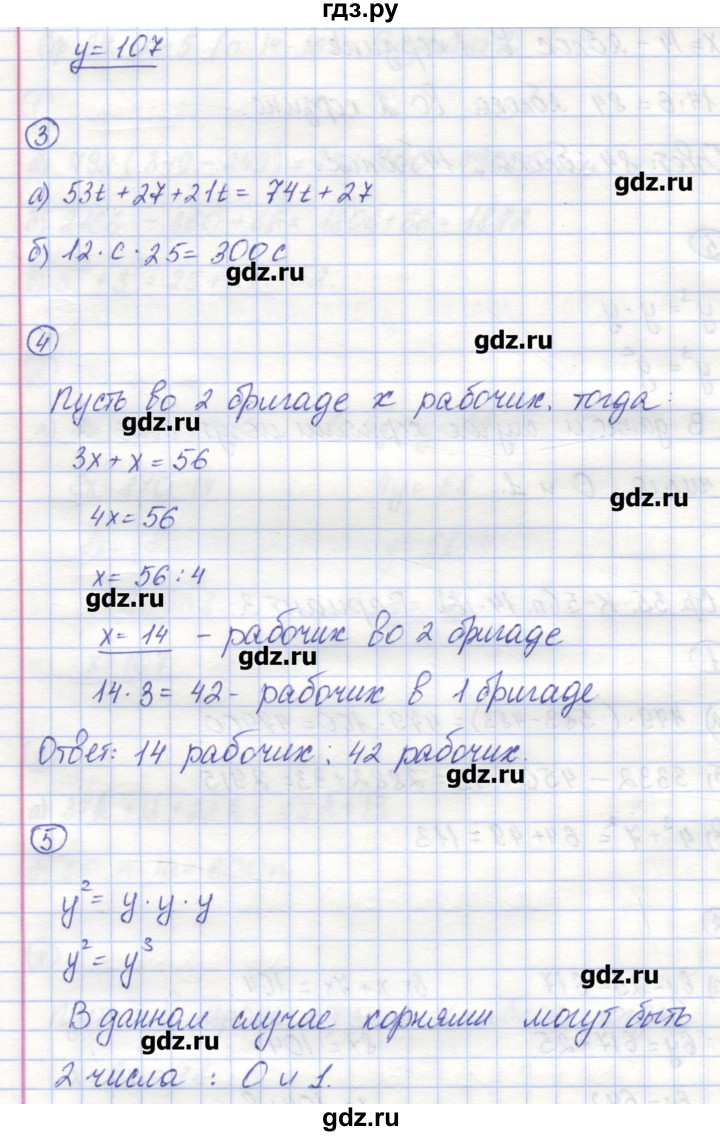 гдз.ру
y = 107
3
а) 53t + 27 + 21t = 74t + 27
gdz.ru
б) 12 · c · 25 = 300c
gdz.ru
4
gdz.ru
Пусть во 2 бригаде x рабочих, тогда:
gdz.ru
3x + x = 56
4x = 56
gdz.ru
x = 56 : 4
gdz.ru
x = 14 – рабочих во 2 бригаде
gdz.ru
14 · 3 = 42 – рабочих в 1 бригаде
Ответ: 14 рабочих; 42 рабочих.
gdz.ru
5
y² = y · y · y
y² = y³
gdz.ru
В данном случае корнями могут быть
gdz.ru
2 числа : 0 и 1.
gdz.ru